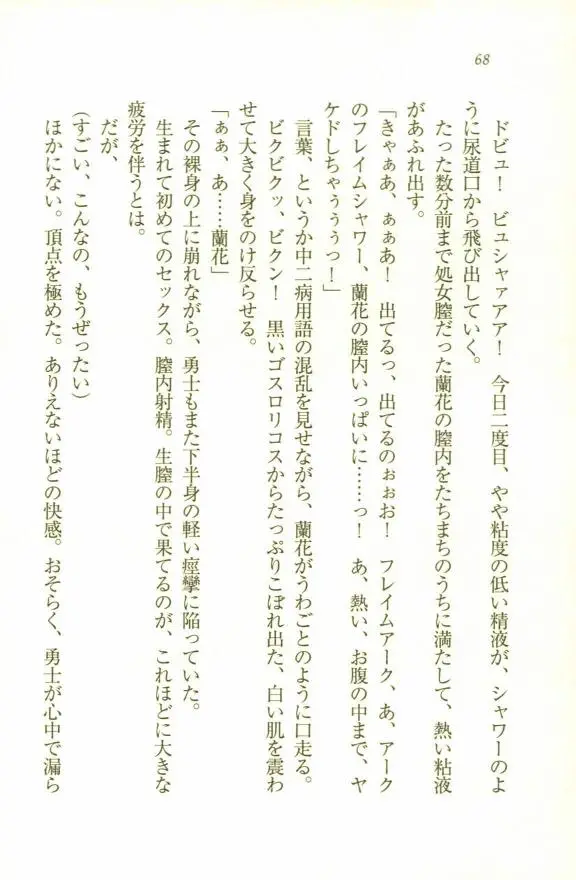 68
ドビュ！　ビュシャァアア！　今日二度目、やや粘度の低い精液が、シャワーのよ
うに尿道口から飛び出していく。
たった数分前まで処女膣だった蘭花の膣内をたちまちのうちに満たして、熱い粘液
があふれ出す。
「きゃぁあ、ぁぁあ！　出てるっ、出てるのぉぉお！　フレイムアーク、あ、アーク
のフレイムシャワー、蘭花の膣内いっぱいに……っ！　あ、熱い、お腹の中まで、ヤ
ケドしちゃぅぅぅっ！」
言葉、というか中二病用語の混乱を見せながら、蘭花がうわごとのように口走る。
ビクビクッ、ビクン！　黒いゴスロリコスからたっぷりこぼれ出た、白い肌を震わ
せて大きく身をのけ反らせる。
「ぁぁ、あ……蘭花」
その裸身の上に崩れながら、勇士もまた下半身の軽い痙攣に陥っていた。
生まれて初めてのセックス。膣内射精。生膣の中で果てるのが、これほどに大きな
疲労を伴うとは。
だが、
（すごい、こんなの、もうぜったい）
ほかにない。頂点を極めた。ありえないほどの快感。おそらく、勇士が心中で漏ら